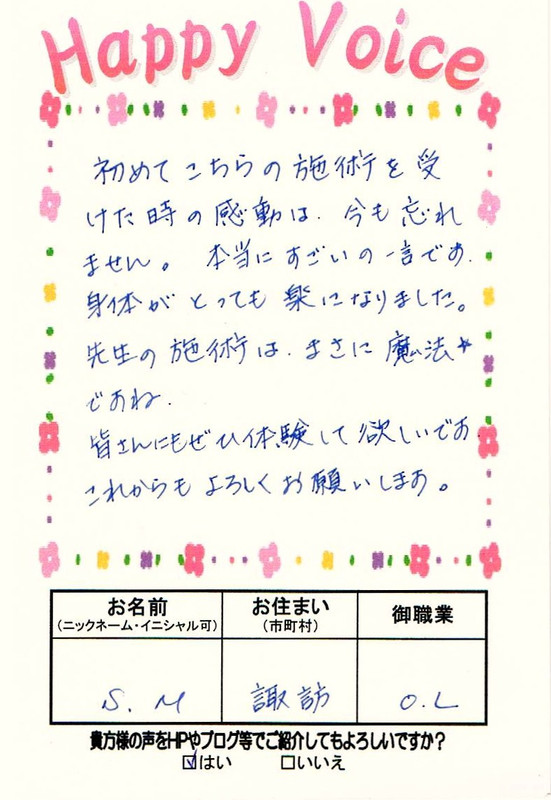 Happy Voice
初めてこちらの施術を受
けた時の感動は、今も忘れ
ません。本当にすごいの一言です。
身体がとっても楽になりました。
先生の施術は、まさに魔法☆
ですね。
皆さんにもぜひ体験して欲しいです。
これからもよろしくお願いします。
お名前
(ニックネーム・イニシャル可)
お住まい
(市町村)
御職業
S.M
諏訪
O.L
貴方様の声をHPやブログ等でご紹介してもよろしいですか？
☑はい □いいえ